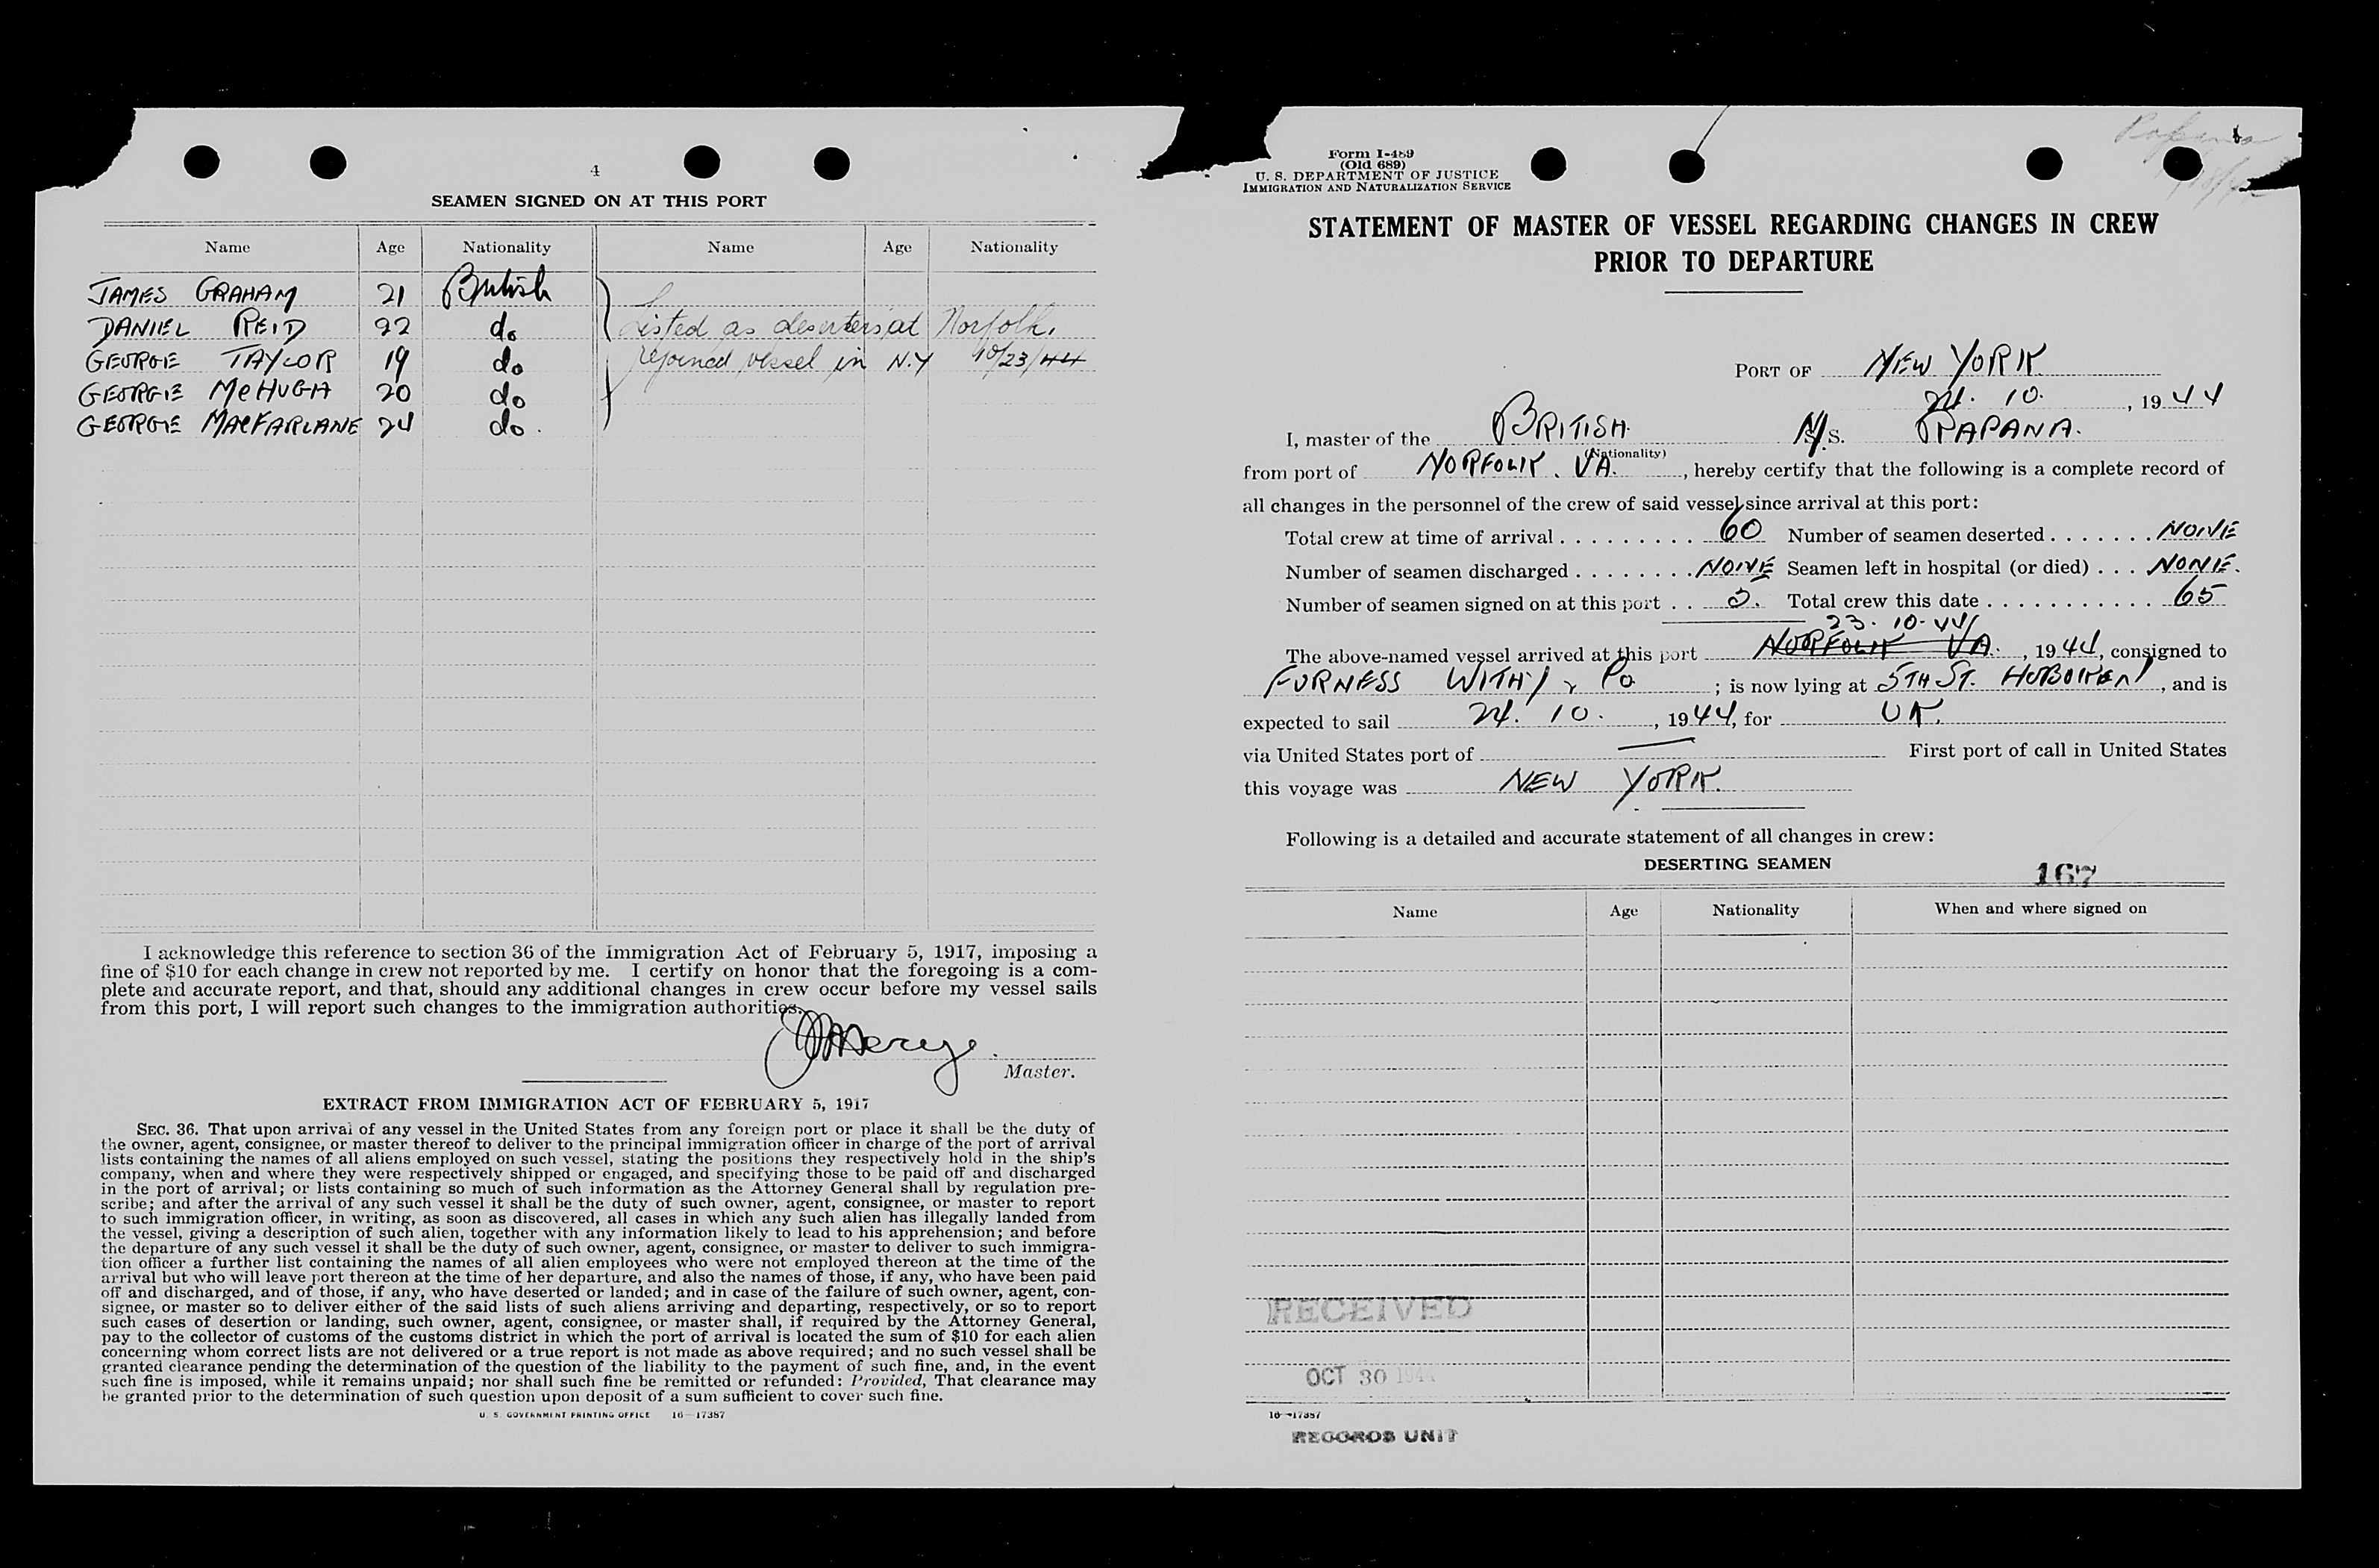 4
SEAMEN SIGNED ON AT THIS PORT
Name Age Nationality Name Age Nationality
JAMES GRAHAM 21 British
DANIEL REID 22 do Listed as deserters at Norfolk,
GEORGE TAYLOR 19 do rejoined vessel in N.Y 10/23/44
GEORGE McHUGH 20 do
GEORGE MacFARLANE 24 do.
I acknowledge this reference to section 36 of the Immigration Act of February 5, 1917, imposing a
fine of $10 for each change in crew not reported by me. I certify on honor that the foregoing is a com-
plete and accurate report, and that, should any additional changes in crew occur before my vessel sails
from this port, I will report such changes to the immigration authorities.
Master.
EXTRACT FROM IMMIGRATION ACT OF FEBRUARY 5, 1917
SEC. 36. That upon arrival of any vessel in the United States from any foreign port or place it shall be the duty of
the owner, agent, consignee, or master thereof to deliver to the principal immigration officer in charge of the port of arrival
lists containing the names of all aliens employed on such vessel, stating the positions they respectively hold in the ship's
company, when and where they were respectively shipped or engaged, and specifying those to be paid off and discharged
in the port of arrival; or lists containing so much of such information as the Attorney General shall by regulation pre-
scribe; and after the arrival of any such vessel it shall be the duty of such owner, agent, consignee, or master to report
to such immigration officer, in writing, as soon as discovered, all cases in which any such alien has illegally landed from
the vessel, giving a description of such alien, together with any information likely to lead to his apprehension; and before
the departure of any such vessel it shall be the duty of such owner, agent, consignee, or master to deliver to such immigra-
tion officer a further list containing the names of all alien employees who were not employed thereon at the time of the
arrival but who will leave port thereon at the time of her departure, and also the names of those, if any, who have been paid
off and discharged, and of those, if any, who have deserted or landed; and in case of the failure of such owner, agent, con-
signee, or master so to deliver either of the said lists of such aliens arriving and departing, respectively, or so to report
such cases of desertion or landing, such owner, agent, consignee, or master shall, if required by the Attorney General,
pay to the collector of customs of the customs district in which the port of arrival is located the sum of $10 for each alien
concerning whom correct lists are not delivered or a true report is not made as above required; and no such vessel shall be
granted clearance pending the determination of the question of the liability to the payment of such fine, and, in the event
such fine is imposed, while it remains unpaid; nor shall such fine be remitted or refunded: Provided, That clearance may
be granted prior to the determination of such question upon deposit of a sum sufficient to cover such fine.
U. S. GOVERNMENT PRINTING OFFICE 16—17387
Form I-489
(Old 689)
U. S. DEPARTMENT OF JUSTICE
IMMIGRATION AND NATURALIZATION SERVICE
STATEMENT OF MASTER OF VESSEL REGARDING CHANGES IN CREW
PRIOR TO DEPARTURE
PORT OF NEW YORK
24. 10. , 1944
I, master of the BRITISH M/S. RAPANA.
(Nationality)
from port of NORFOLK. VA. , hereby certify that the following is a complete record of
all changes in the personnel of the crew of said vessel since arrival at this port:
Total crew at time of arrival . . . . . . . . . . 60 Number of seamen deserted . . . . . . . NONE
Number of seamen discharged . . . . . . . . NONE Seamen left in hospital (or died) . . . NONE.
Number of seamen signed on at this port . . 5. Total crew this date . . . . . . . . . . . . 65
23. 10. 44
The above-named vessel arrived at this port NORFOLK VA. , 1944, consigned to
FURNESS WITHY & Co ; is now lying at 5TH ST. HOBOKEN , and is
expected to sail 24. 10. , 1944, for UK.
via United States port of — First port of call in United States
this voyage was NEW YORK.
Following is a detailed and accurate statement of all changes in crew:
DESERTING SEAMEN
167
Name Age Nationality When and where signed on
RECEIVED
OCT 30 1944
16—17387
RECORDS UNIT